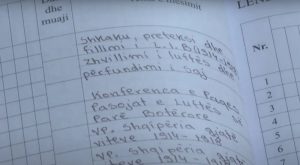 dhe
muaji
mësimit
Nr.
Shkaku, preteksti dhe
fillimi i L.I.B(1914-1918)
zhvillimi i luftës dhe
përfundimi i saj
Konferenca e Paqes
Pasojat e Luftës së
Parë Botërore
vp. Shqipëria gjatë
viteve 1914-1918
vp. Shqipëria gjatë
viteve 1914-1918
1
2
3
4
5
6